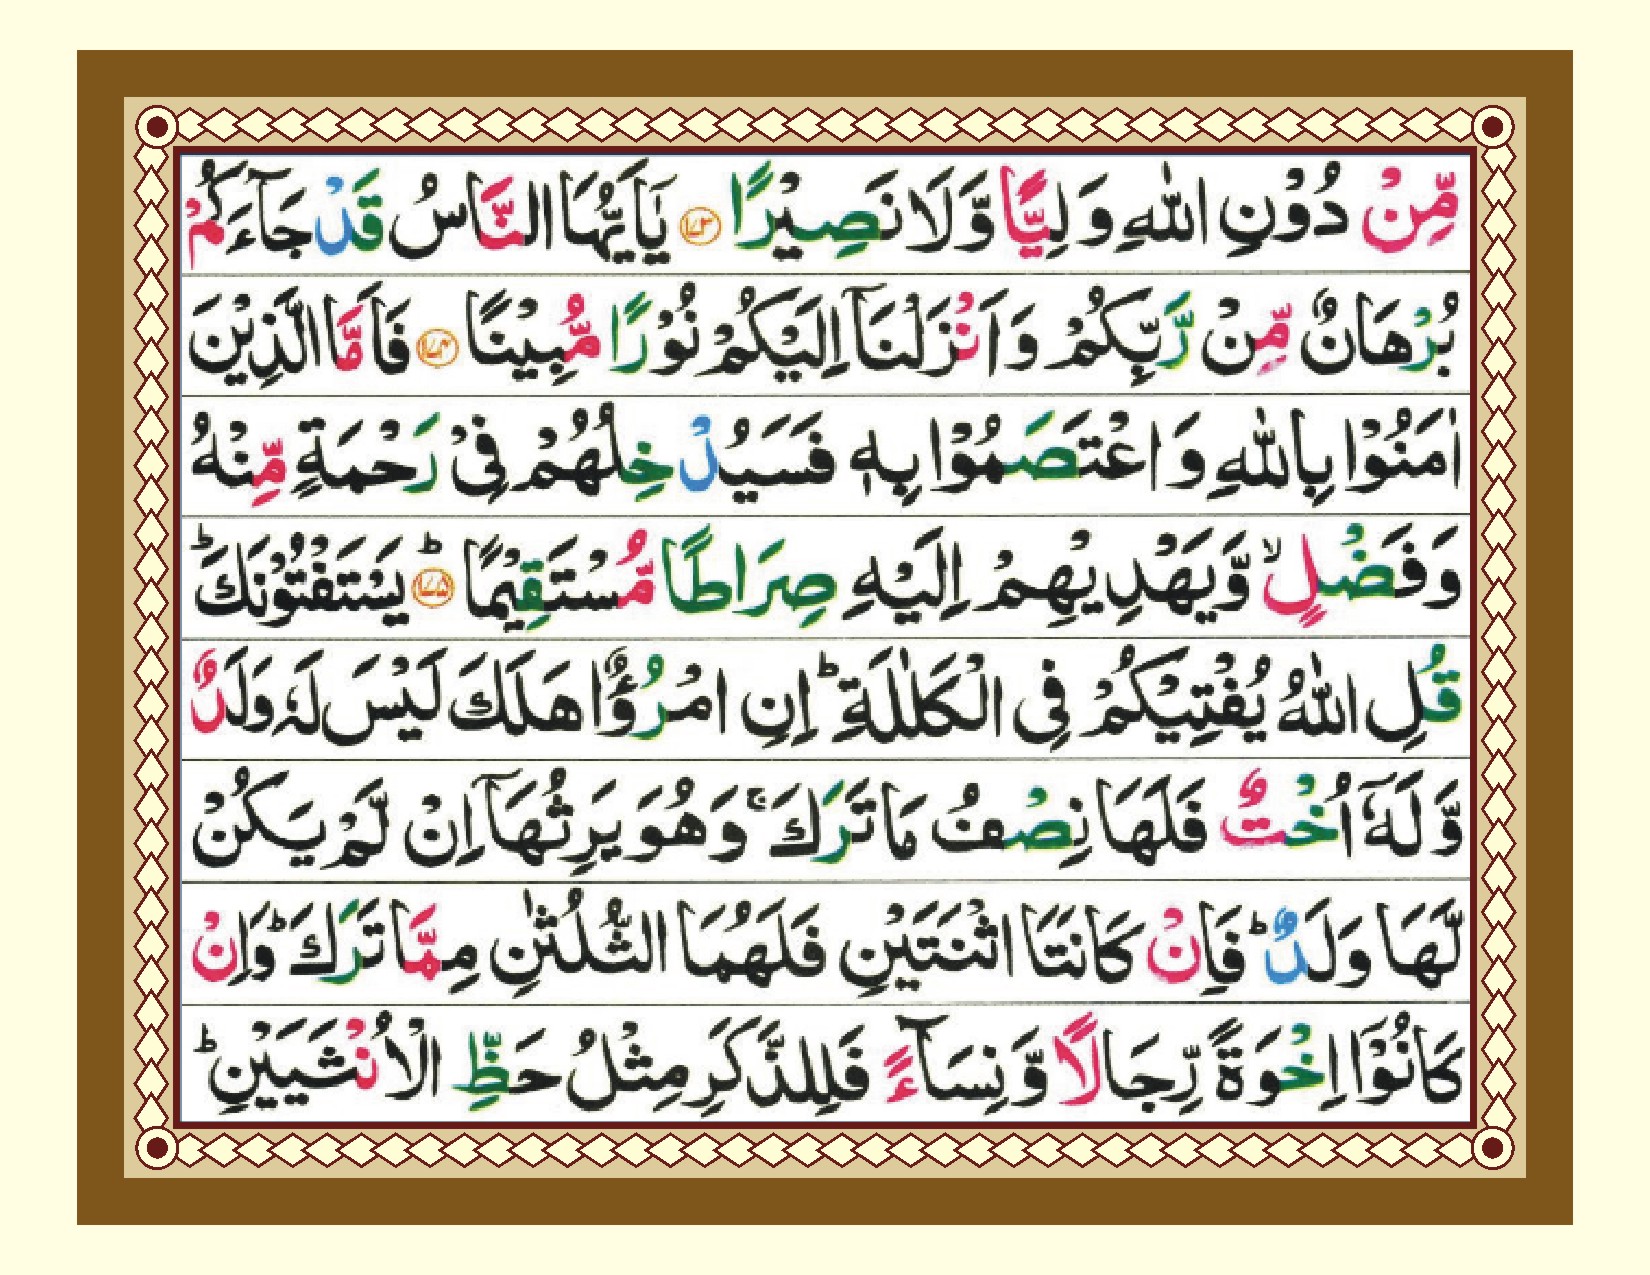 مِّنْ دُوْنِ اللّٰهِ وَلِيًّا وَّلَا نَصِيْرًا ﴿۱۷۳﴾ يٰۤاَيُّهَا النَّاسُ قَدْ جَآءَكُمْ
بُرْهَانٌ مِّنْ رَّبِّكُمْ وَاَنْزَلْنَاۤ اِلَيْكُمْ نُوْرًا مُّبِيْنًا ﴿۱۷۴﴾ فَاَمَّا الَّذِيْنَ
اٰمَنُوْا بِاللّٰهِ وَاعْتَصَمُوْا بِهٖ فَسَيُدْخِلُهُمْ فِىْ رَحْمَةٍ مِّنْهُ
وَفَضْلٍ ۙ وَّيَهْدِيْهِمْ اِلَيْهِ صِرَاطًا مُّسْتَقِيْمًا ؕ ﴿۱۷۵﴾ يَسْتَفْتُوْنَكَ ؕ
قُلِ اللّٰهُ يُفْتِيْكُمْ فِى الْكَلٰلَةِ ؕ اِنِ امْرُؤٌا هَلَكَ لَيْسَ لَهٗ وَلَدٌ
وَّلَهٗۤ اُخْتٌ فَلَهَا نِصْفُ مَا تَرَكَ ۚ وَهُوَ يَرِثُهَاۤ اِنْ لَّمْ يَكُنْ
لَّهَا وَلَدٌ ؕ فَاِنْ كَانَتَا اثْنَتَيْنِ فَلَهُمَا الثُّلُثٰنِ مِمَّا تَرَكَ ؕ وَاِنْ
كَانُوْۤا اِخْوَةً رِّجَالًا وَّنِسَآءً فَلِلذَّكَرِ مِثْلُ حَظِّ الْاُنْثَيَيْنِ ؕ